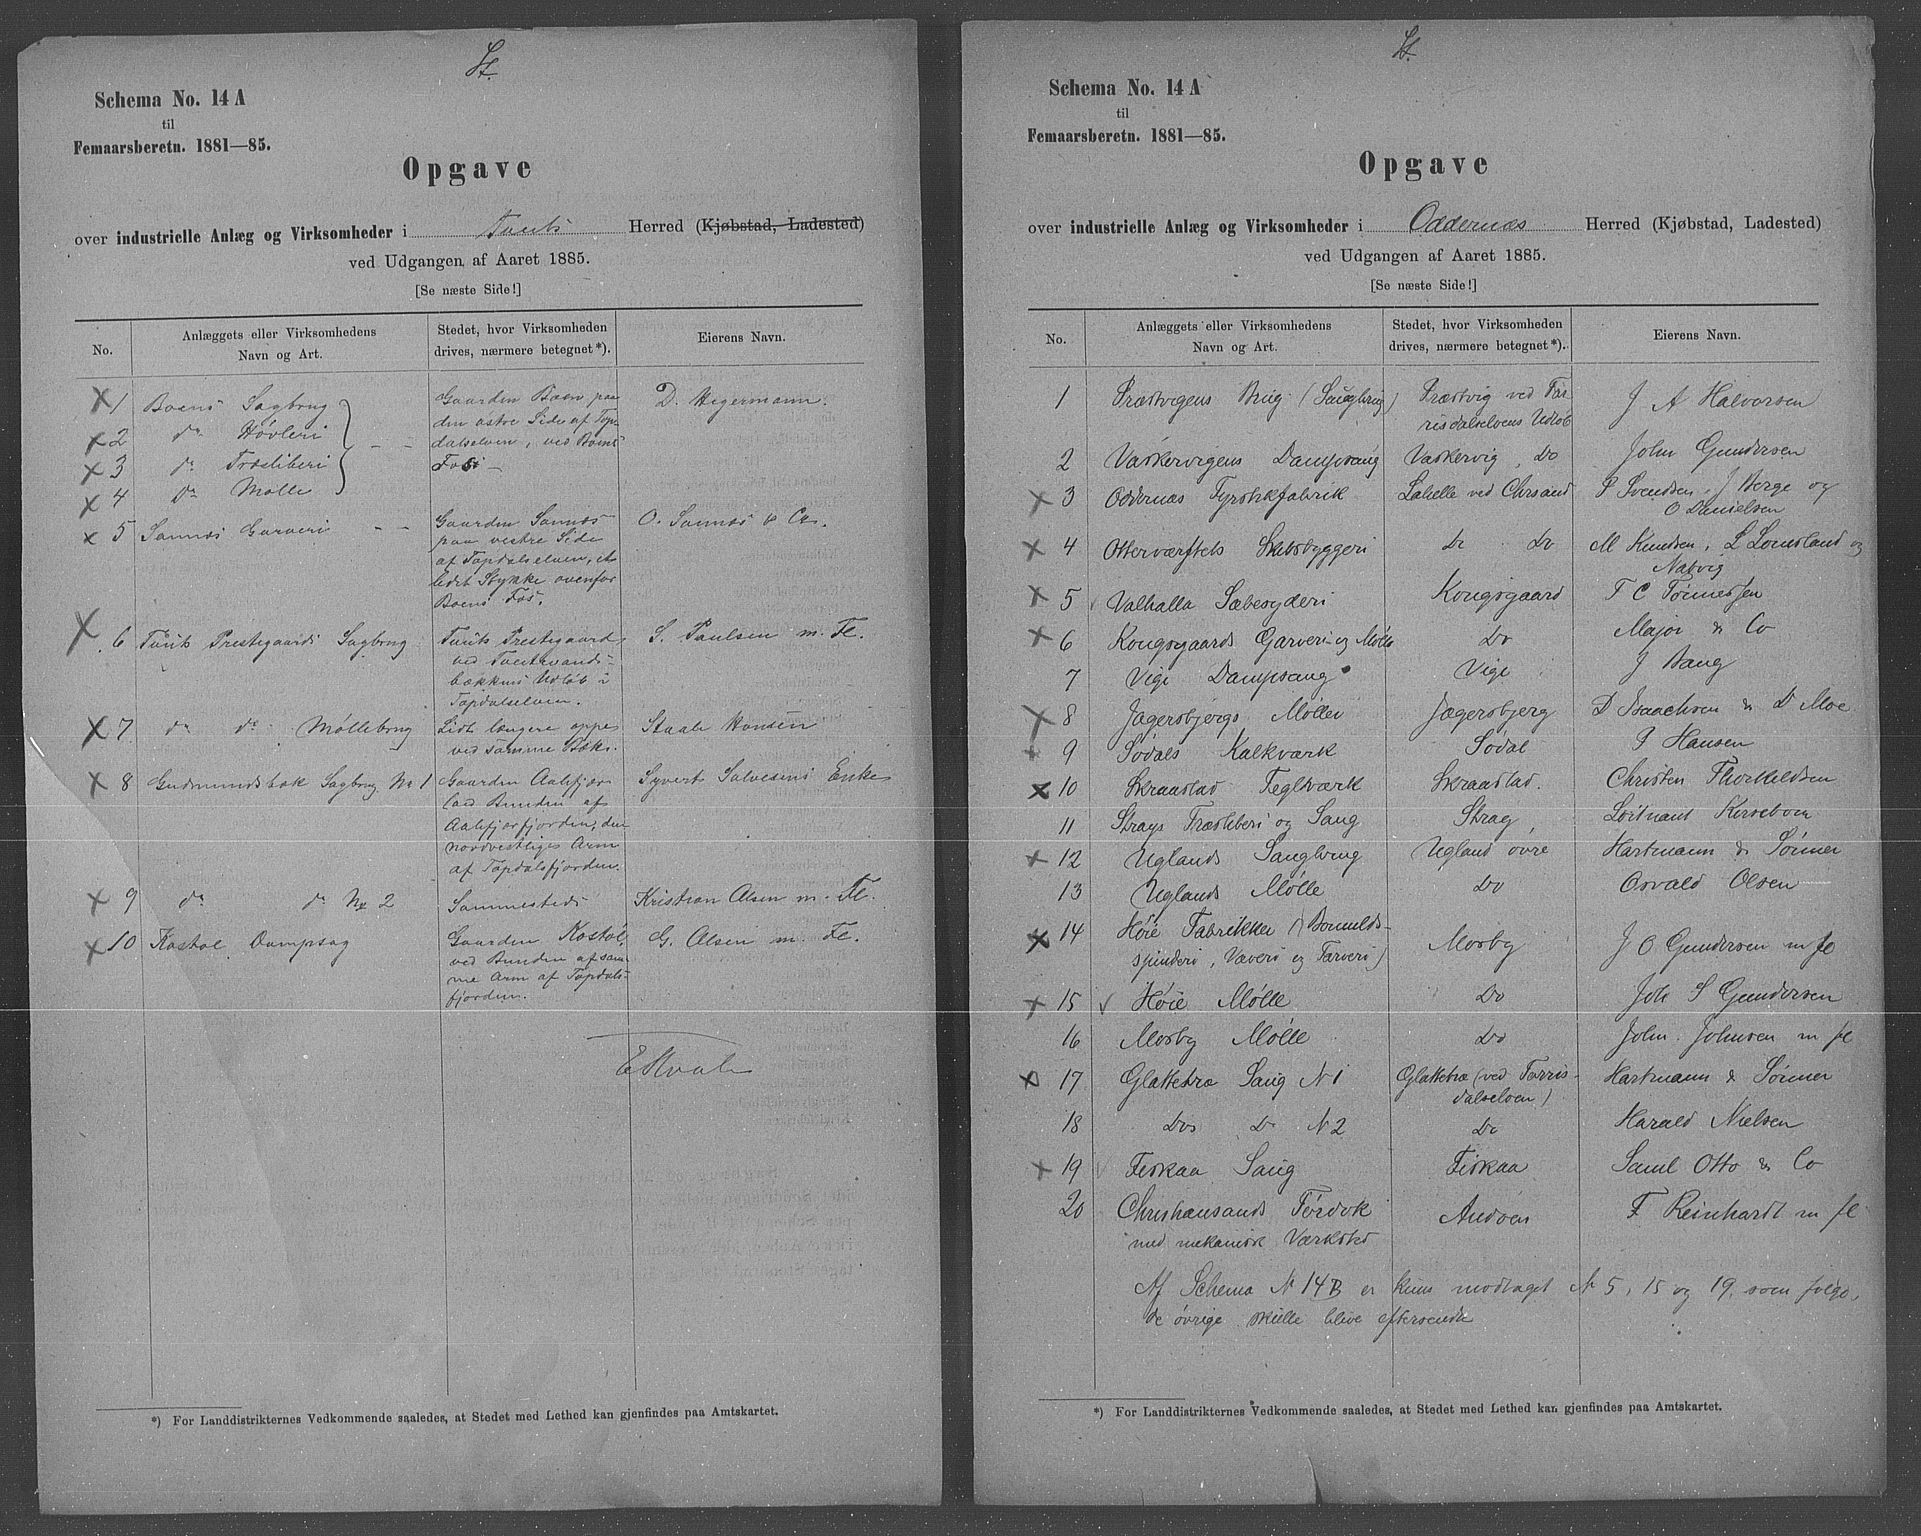 St.
Schema No. 14 A
til
Femaarsberetn. 1881—85.
Opgave
over industrielle Anlæg og Virksomheder i Tveits Herred (Kjøbstad, Ladested)
ved Udgangen af Aaret 1885.
[Se næste Side!]
No.
Anlæggets eller Virksomhedens
Navn og Art.
Stedet, hvor Virksomheden
drives, nærmere betegnet*).
Eierens Navn.
1 Boens Sagbrug
Gaarden Boen paa
den østre Side af Top-
dalselven, ved Boens
Fos.
D. Hegermann.
2 do Høvleri
3 do Træsliberi
4 do Mølle
5 Sannæs Garveri
Gaarden Sannæs
paa vestre Side
af Topdalselven, et
lidet Stykke ovenfor
Boens Fos.
O. Sannæs & Co.
6 Tveits Prestegaards Sagbrug
Tveits Prestegaard
ved Tveitevands-
bækkens Udløb i
Topdalselven.
S. Paulsen m. Fl.
7 do do Møllebrug
Lidt længere oppe
ved samme Bæk.
Staale Hansen
8 Gudmundsbæk Sagbrug No 1
Gaarden Aalefjær
ved Bunden af
Aalefjærfjorden, den
nordvestliges Arm
af Topdalsfjorden.
Syvert Salvesens Enke
9 do do No 2
Sammesteds
Kristian Olsen m. Fl.
10 Kostøl Dampsag
Gaarden Kostøl,
ved Bunden af sam-
me Arm af Topdals-
fjorden.
G. Olsen m. Fl.
*) For Landdistrikternes Vedkommende saaledes, at Stedet med Lethed kan gjenfindes paa Amtskartet.
St.
Schema No. 14 A
til
Femaarsberetn. 1881—85.
Opgave
over industrielle Anlæg og Virksomheder i Oddernæs Herred (Kjøbstad, Ladested)
ved Udgangen af Aaret 1885.
[Se næste Side!]
No.
Anlæggets eller Virksomhedens
Navn og Art.
Stedet, hvor Virksomheden
drives, nærmere betegnet*).
Eierens Navn.
1 Præstvigens Brug (Saugbrug) Præstvig ved Tor-
risdalselvens Udløb
J A Halvorsen
2 Vaskervigens Dampsaug Vaskervig, Do John Gundersen
3 Oddernæs Fyrstikfabrik Lahelle ved Chrsand P Svendsen, J Berge og
O Danielsen
4 Otterværftets Skibsbyggeri Do Do M Knudsen, L Lomsland og
Natvig
5 Valhalla Sæbesyderi Kongsgaard T C Tønnessen
6 Kongsgaards Garveri og Mølle Do Major & Co
7 Vige Dampsaug Vige J Bang
8 Jægersbjergs Møller Jægersbjerg D Isaachsen & D Moe
9 Sødals Kalkværk Sødal P Hansen
10 Skraastad Teglværk Skraastad. Christen Thorkeldsen
11 Strays Træsliberi og Saug Stray, Løitnant Kierseboom
12 Uglands Saugbrug Ugland øvre Hartmann & Sønner
13 Uglands Mølle Do Osvald Olsen
14 Høie Fabrikker (Bomulds-
spinderi, Væveri og Farveri)
Mosby J O Gundersen m fl
15 Høie Mølle Do Joh S Gundersen
16 Mosby Mølle Do John Johnsen m fl
17 Glattetræ Saug N 1 Glattetræ (ved Torris-
dalselven)
Hartmann & Sønner
18 Dos Do N 2 Do Harald Nielsen
19 Fiskaa Saug Fiskaa Saml Otto & Co
20 Christiansands Tørdok
med mekanisk Værksted
Andøen F Reinhardt m fl
Af Schema No 14B er kun modtaget No 5, 15 og 19, som følge,
de øvrige skulle blive eftersendte
*) For Landdistrikternes Vedkommende saaledes, at Stedet med Lethed kan gjenfindes paa Amtskartet.